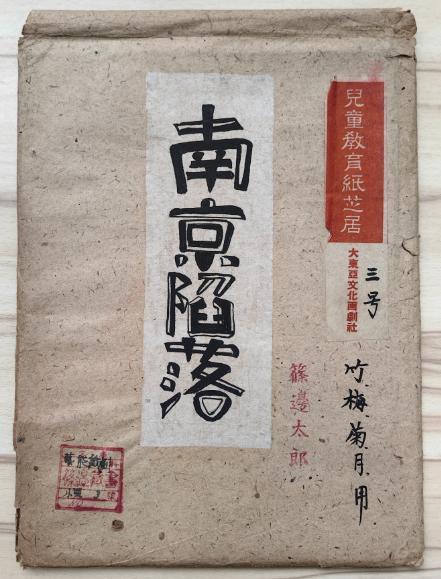 兒童敎育紙芝居
大東亞文化画劇社
三号
竹、梅、菊、月、用
南京陷落
篠邊太郎